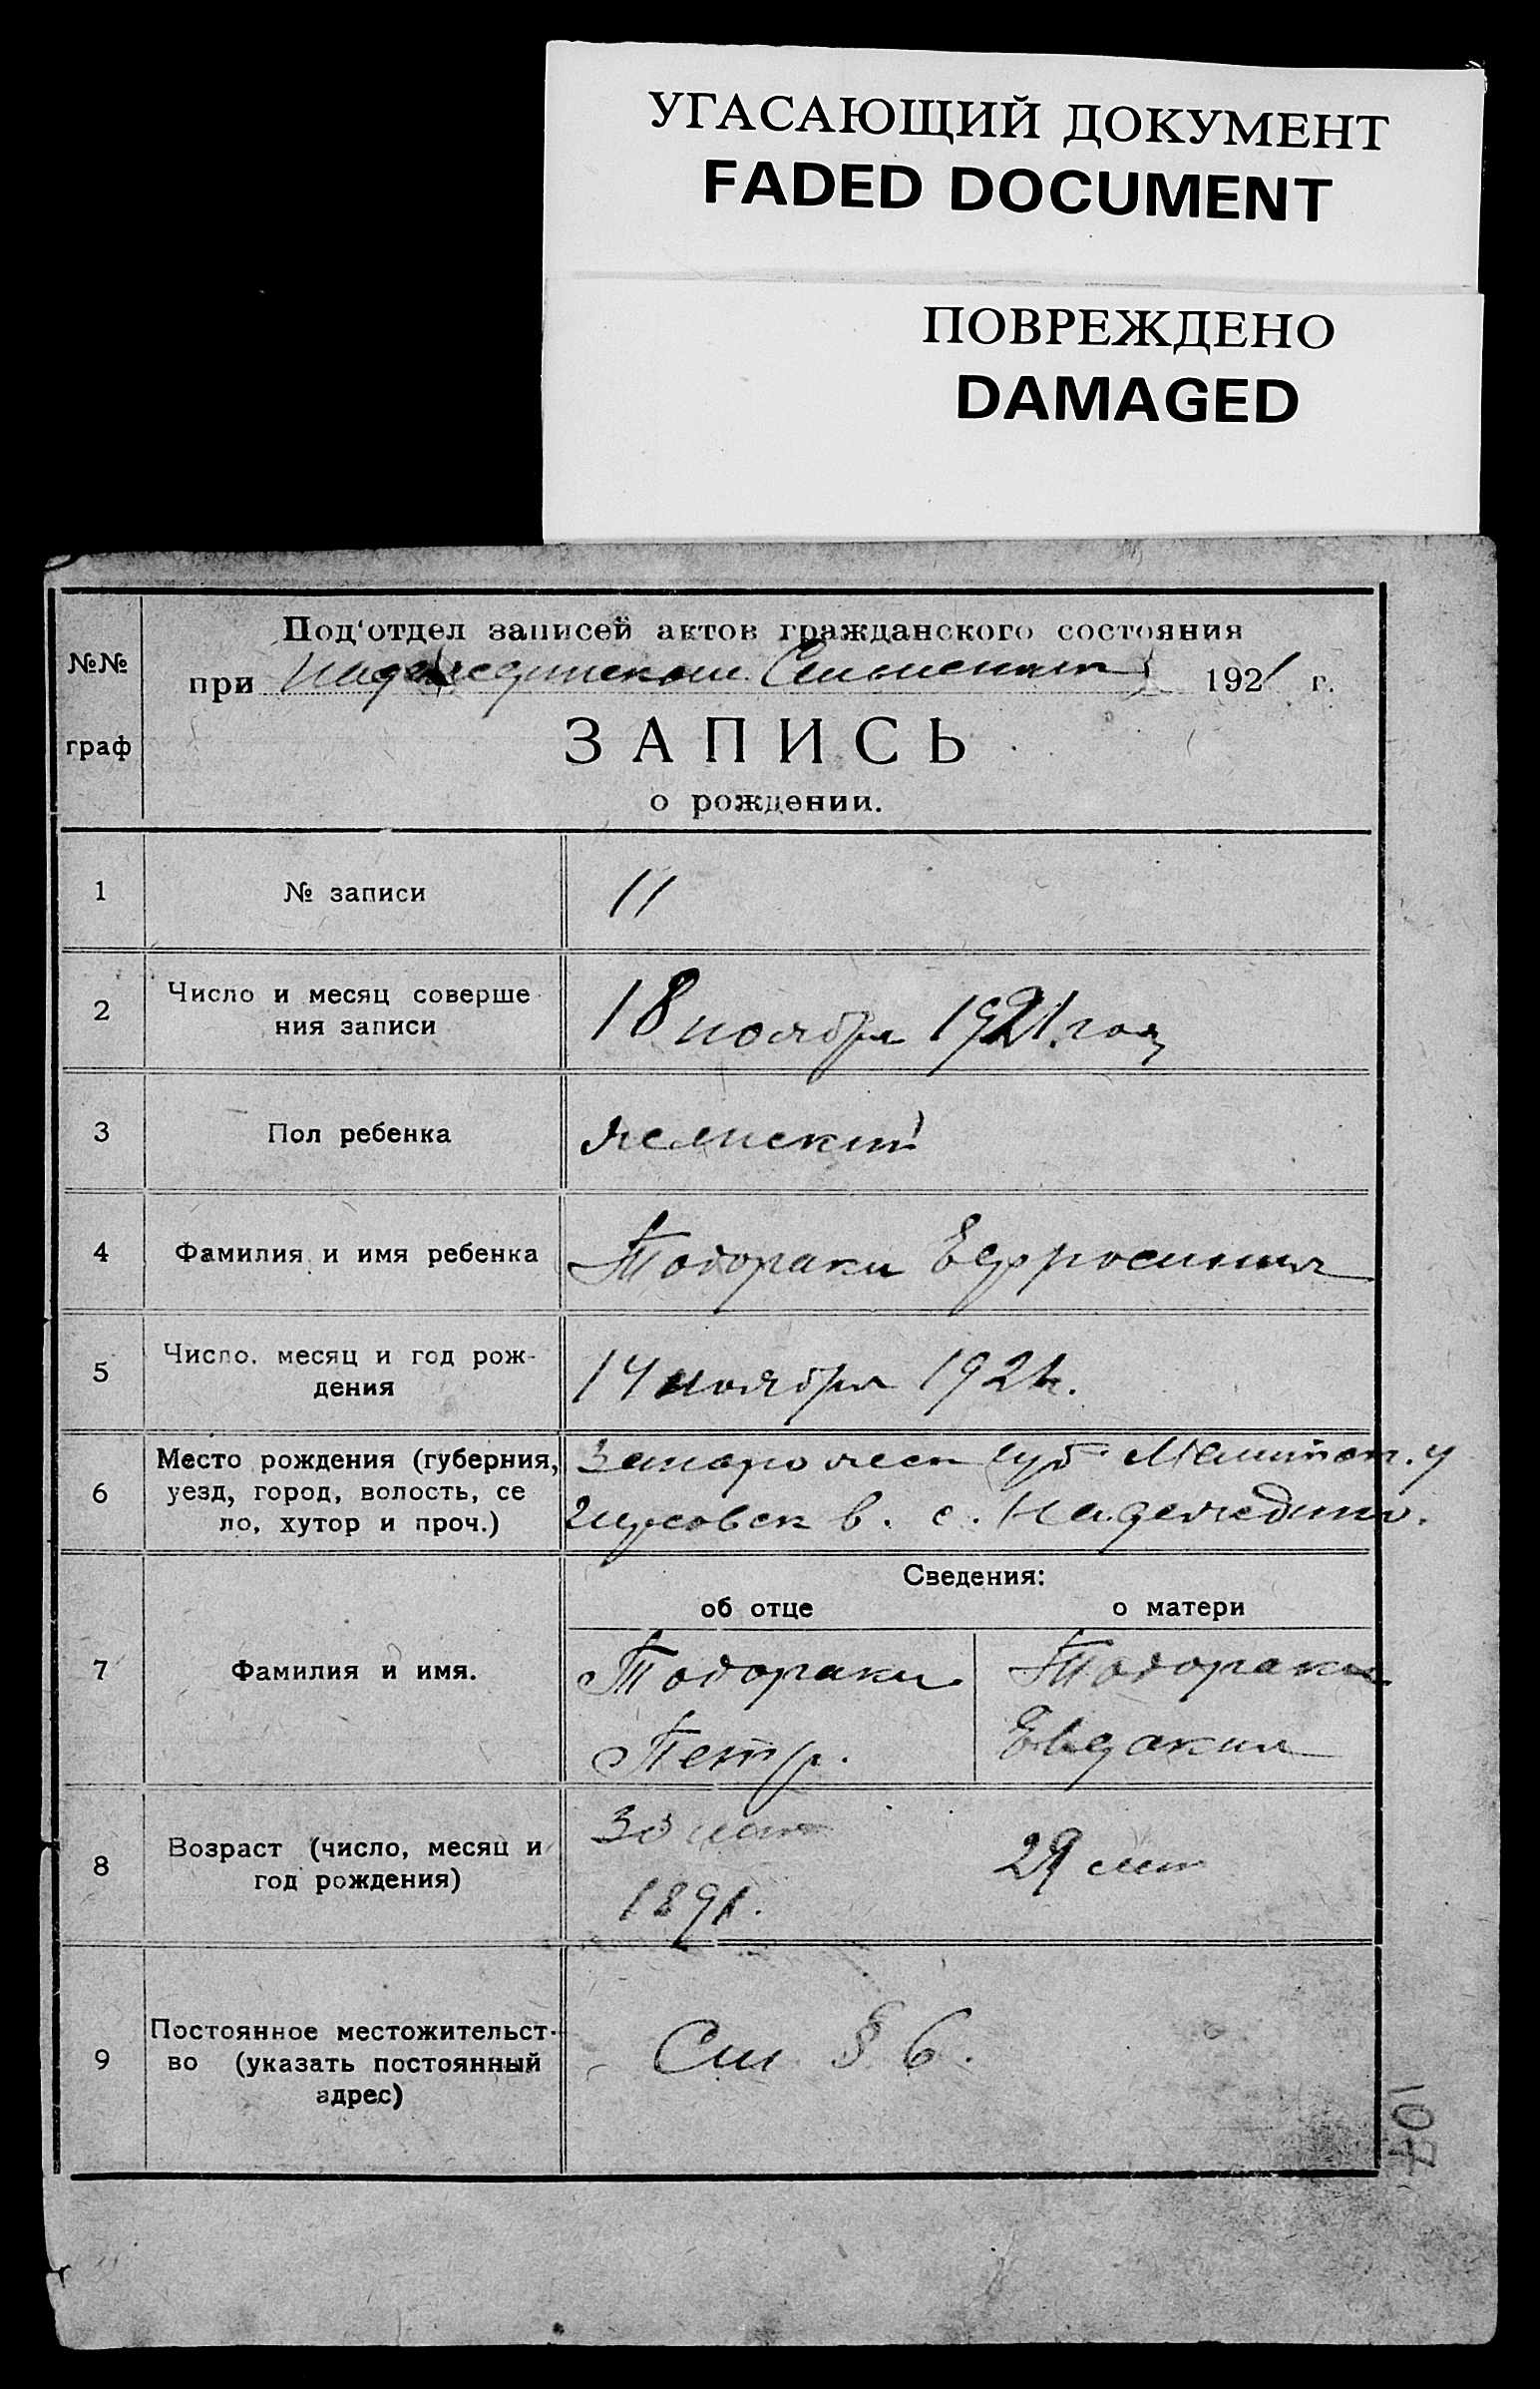 УГАСАЮЩИЙ ДОКУМЕНТ
FADED DOCUMENT
ПОВРЕЖДЕНО
DAMAGED
№№
граф
Под'отдел записей актов гражданского состояния
при Надеждинском 1921 г.
ЗАПИСЬ
о рождении.
1 № записи 11
2 Число и месяц соверше
ния записи
18 ноября 1921 год
3 Пол ребенка женский
4 Фамилия и имя ребенка Тодораки Ефросиния
5 Число, месяц и год рож-
дения
14 ноября 1921 г.
6 Место рождения (губерния,
уезд, город, волость, се
ло, хутор и проч.)
Запорожск губ Мелитоп. у
в. с. Надеждино.
Сведения:
об отце о матери
7 Фамилия и имя.
Тодораки Тодораки
Петр. Евдакия
8 Возраст (число, месяц и
год рождения)
30 лет 29 лет
1891.
9 Постоянное местожительст-
во (указать постоянный
адрес)
См § 6.
107